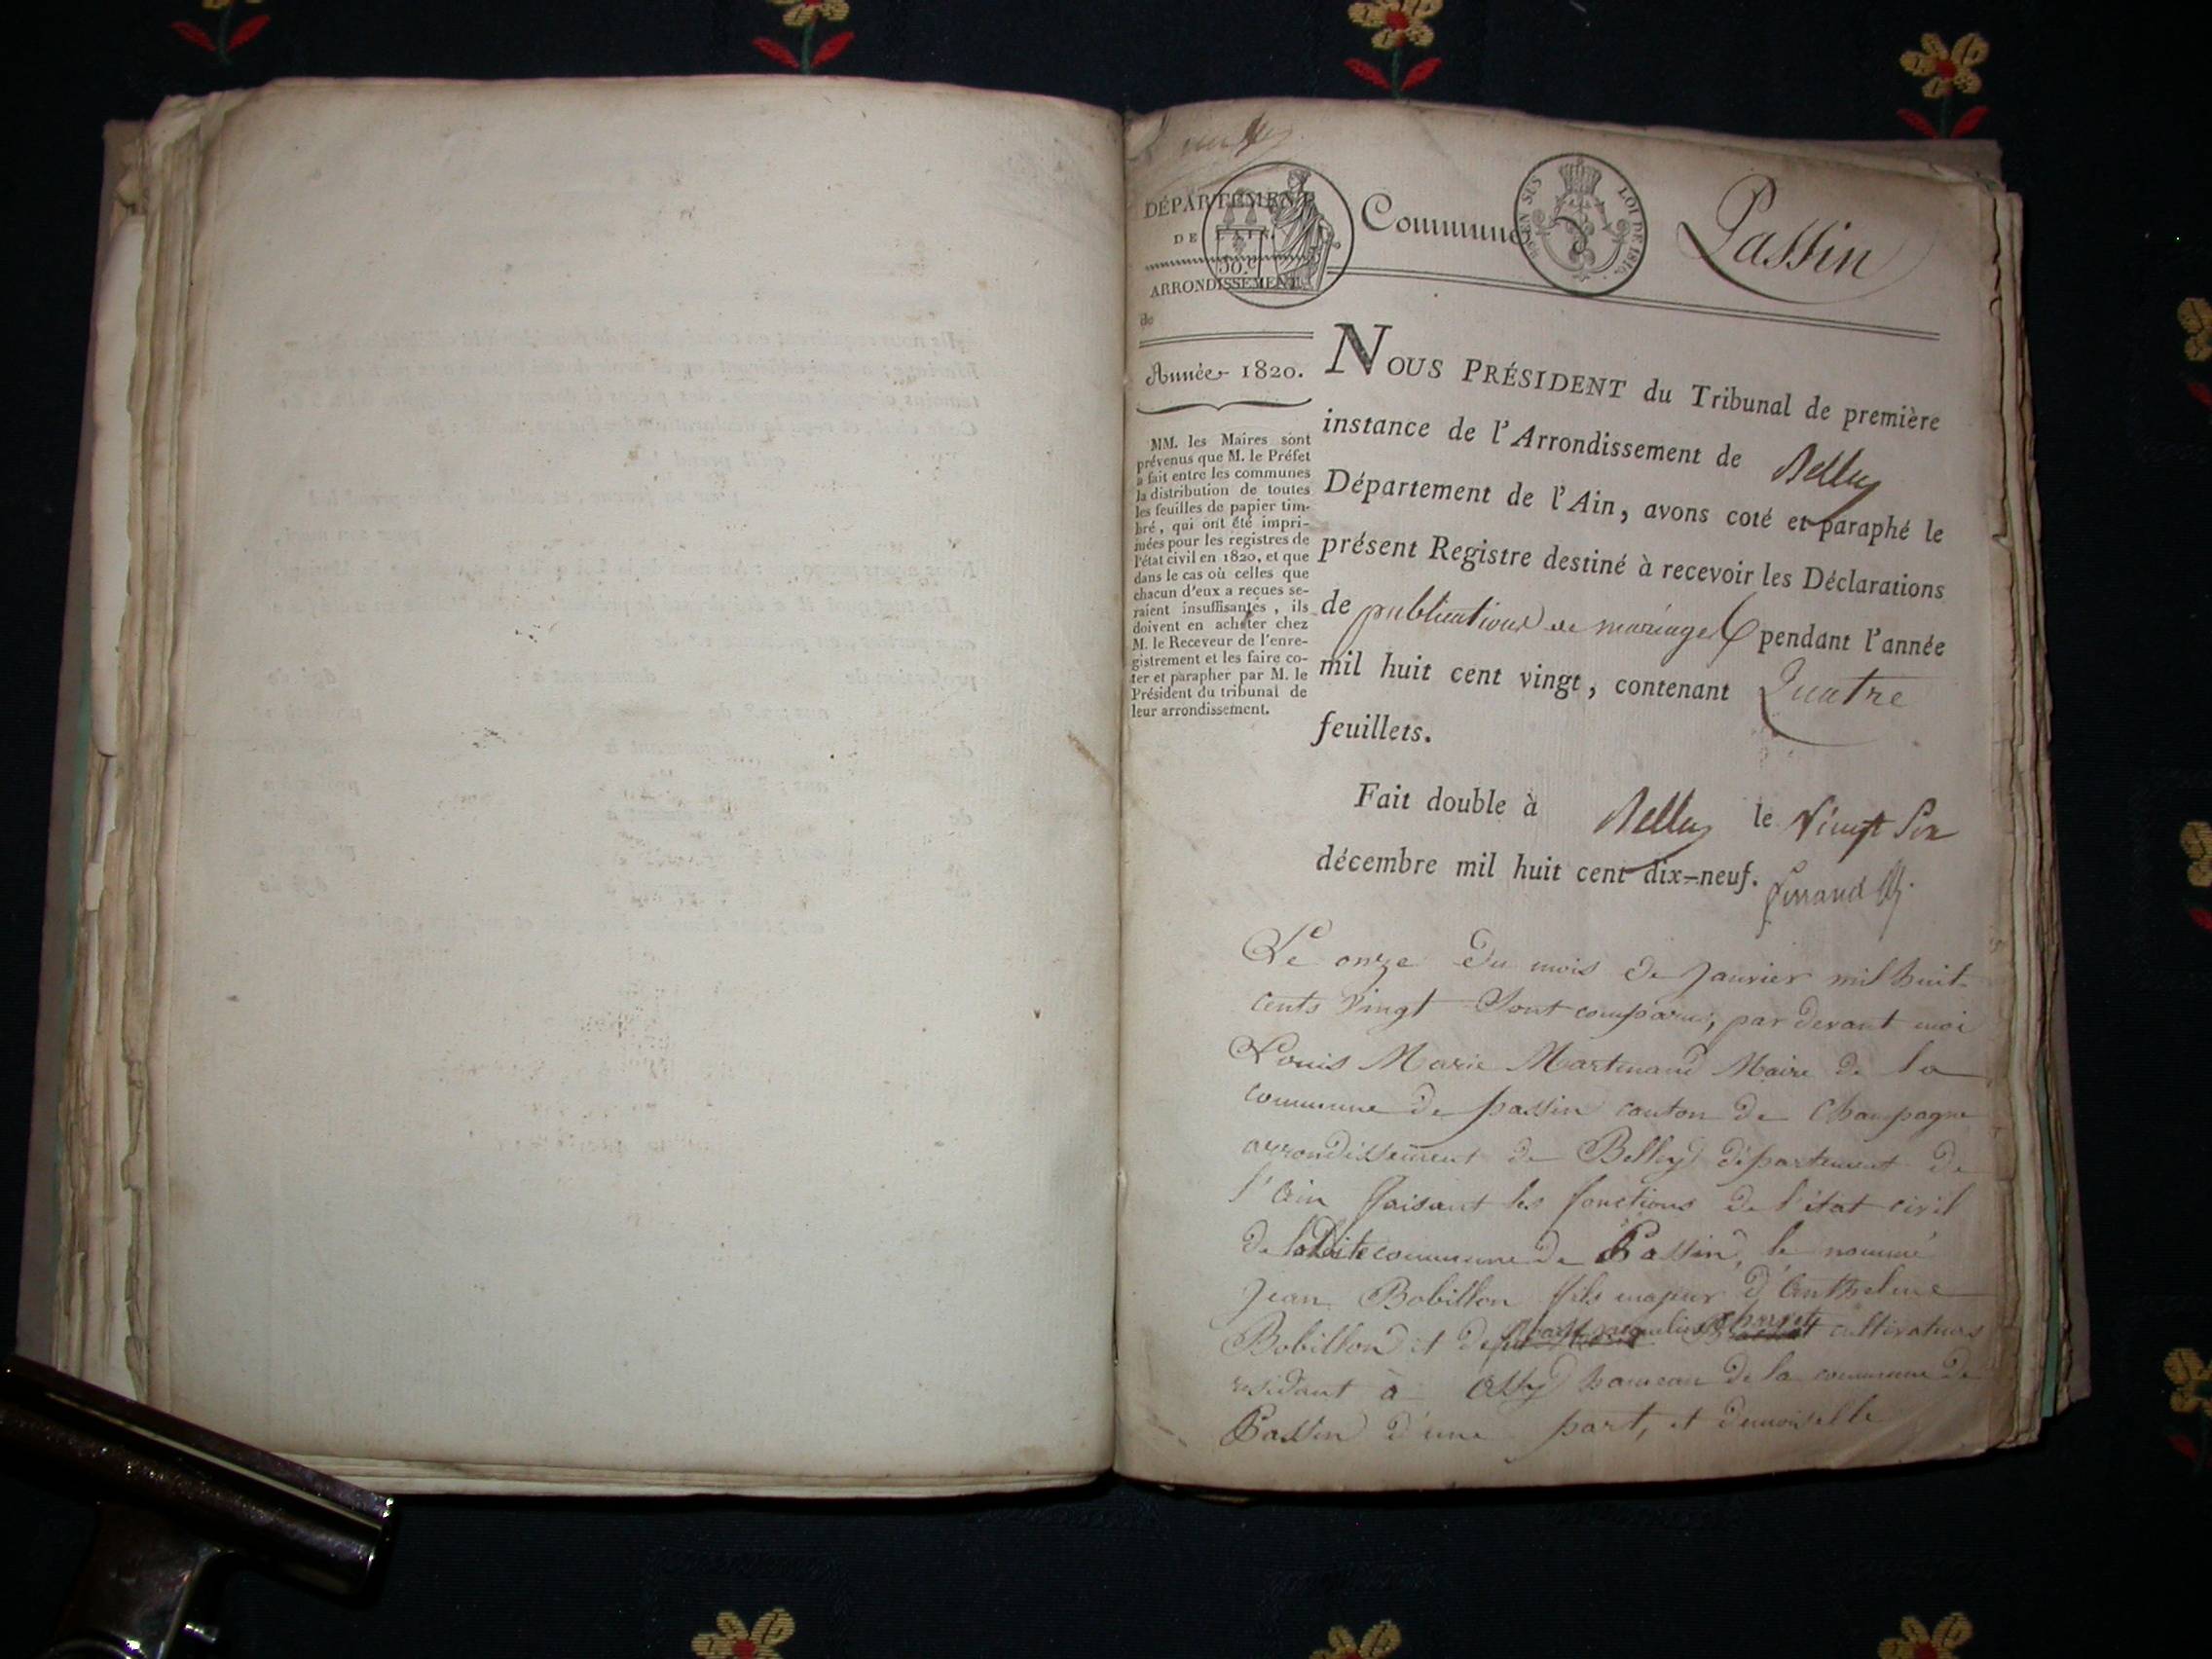 DÉPARTEMENT
DE L'AIN.
ARRONDISSEMENT
de
50.c
Commune
LOI DE 1816.
Passin
Année 1820.
MM. les Maires sont
prévenus que M. le Préfet
a fait entre les communes
la distribution de toutes
les feuilles de papier tim-
bré, qui ont été impri-
mées pour les registres de
l'état civil en 1820, et que
dans le cas où celles que
chacun d'eux a reçues se-
raient insuffisantes, ils
doivent en acheter chez
M. le Receveur de l'enre-
gistrement et les faire co-
ter et parapher par M. le
Président du tribunal de
leur arrondissement.
NOUS PRÉSIDENT du Tribunal de première
instance de l'Arrondissement de Belley
Département de l'Ain, avons coté et paraphé le
présent Registre destiné à recevoir les Déclarations
de publications de mariages pendant l'année
mil huit cent vingt, contenant Quatre
feuillets.
Fait double à Belley le Vingt Six
décembre mil huit cent dix-neuf.
Le onze du mois de Janvier mil huit
cents vingt Sont comparus, par devant moi
Louis Marie Martinand Maire de la
commune de passin canton de Champagne
arrondissement de Belley département de
l'Ain faisant les fonctions de l'état civil
de la dite commune de Passin, le nommé
Jean Bobillon fils majeur d'Anthelme
Bobillon et de cultivateurs
residant à hameau de la commune de
Passin d'une part, et demoiselle